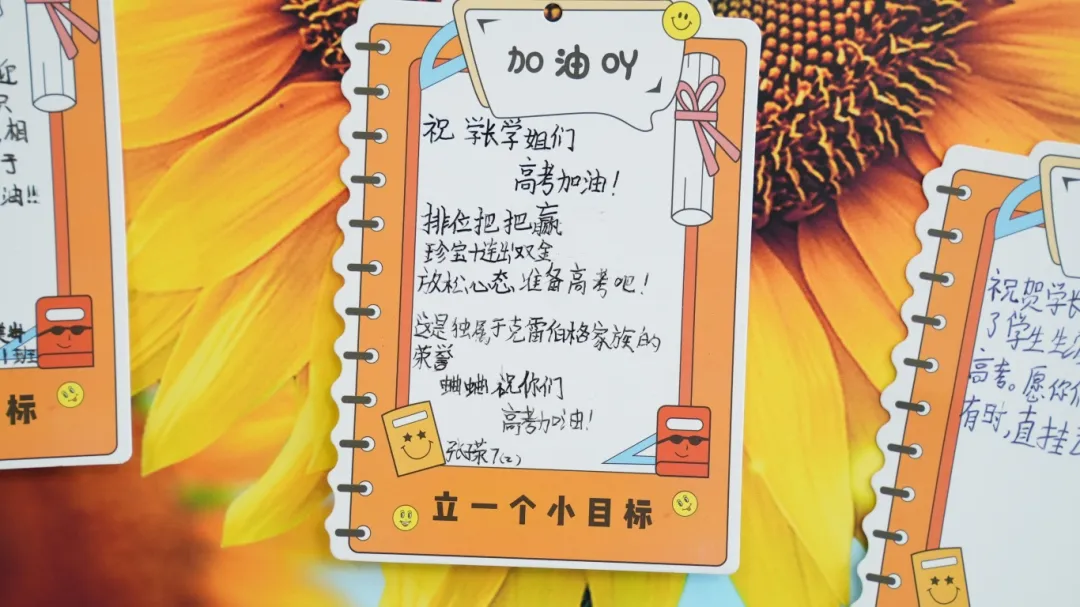 迎
相
于
油!!
1班
标
加油OY
祝 学长学姐们
高考加油!
排位把把赢
珍宝十连出双金
放松心态准备高考吧!
这是独属于克雷伯格家族的
荣誉
蛐蛐祝你们
高考加油!
7(2)
立一个小目标
祝贺学长
了学生生
高考。愿你们
有时,直挂